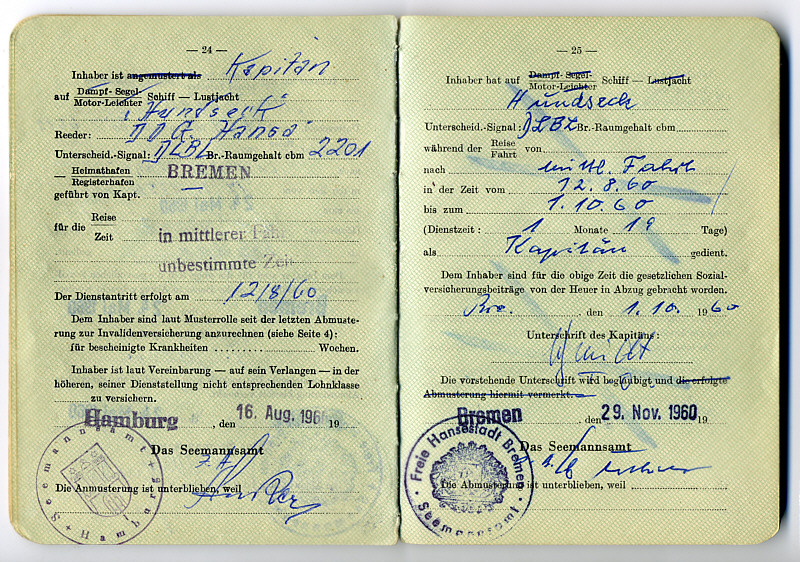 — 24 —
Inhaber ist angemustert als Kapitän
auf Dampf- Segel- Schiff — Lustjacht
Motor-Leichter
"Hundseck"
Reeder: DDG. Hansa
Unterscheid.-Signal: DLBL Br.-Raumgehalt cbm 2201
Heimathafen BREMEN
Registerhafen
geführt von Kapt.
für die Reise
Zeit
in mittlerer Fahrt
unbestimmte Zeit
Der Dienstantritt erfolgt am 12/8/60
Dem Inhaber sind laut Musterrolle seit der letzten Abmuste-
rung zur Invalidenversicherung anzurechnen (siehe Seite 4):
für bescheinigte Krankheiten ......... Wochen.
Inhaber ist laut Vereinbarung — auf sein Verlangen — in der
höheren, seiner Dienststellung nicht entsprechenden Lohnklasse
zu versichern.
Hamburg, den 16. Aug. 1960 19
Das Seemannsamt
Die Anmusterung ist unterblieben, weil
Seemannsamt Hamburg
— 25 —
Inhaber hat auf Dampf- Segel- Schiff — Lustjacht
Motor-Leichter
Hundseck
Unterscheid.-Signal: DLBL Br.-Raumgehalt cbm
während der Reise von
Fahrt
nach mittl. Fahrt
in der Zeit vom 12.8.60
bis zum 1.10.60
(Dienstzeit: 1 Monate 19 Tage)
als Kapitän gedient.
Dem Inhaber sind für die obige Zeit die gesetzlichen Sozial-
versicherungsbeiträge von der Heuer in Abzug gebracht worden.
Bre. den 1.10. 1960
Unterschrift des Kapitäns:
Die vorstehende Unterschrift wird beglaubigt und die erfolgte
Abmusterung hiermit vermerkt.
Bremen, den 29. Nov. 1960 19
Das Seemannsamt
Die Abmusterung ist unterblieben, weil
Freie Hansestadt Bremen
Seemannsamt